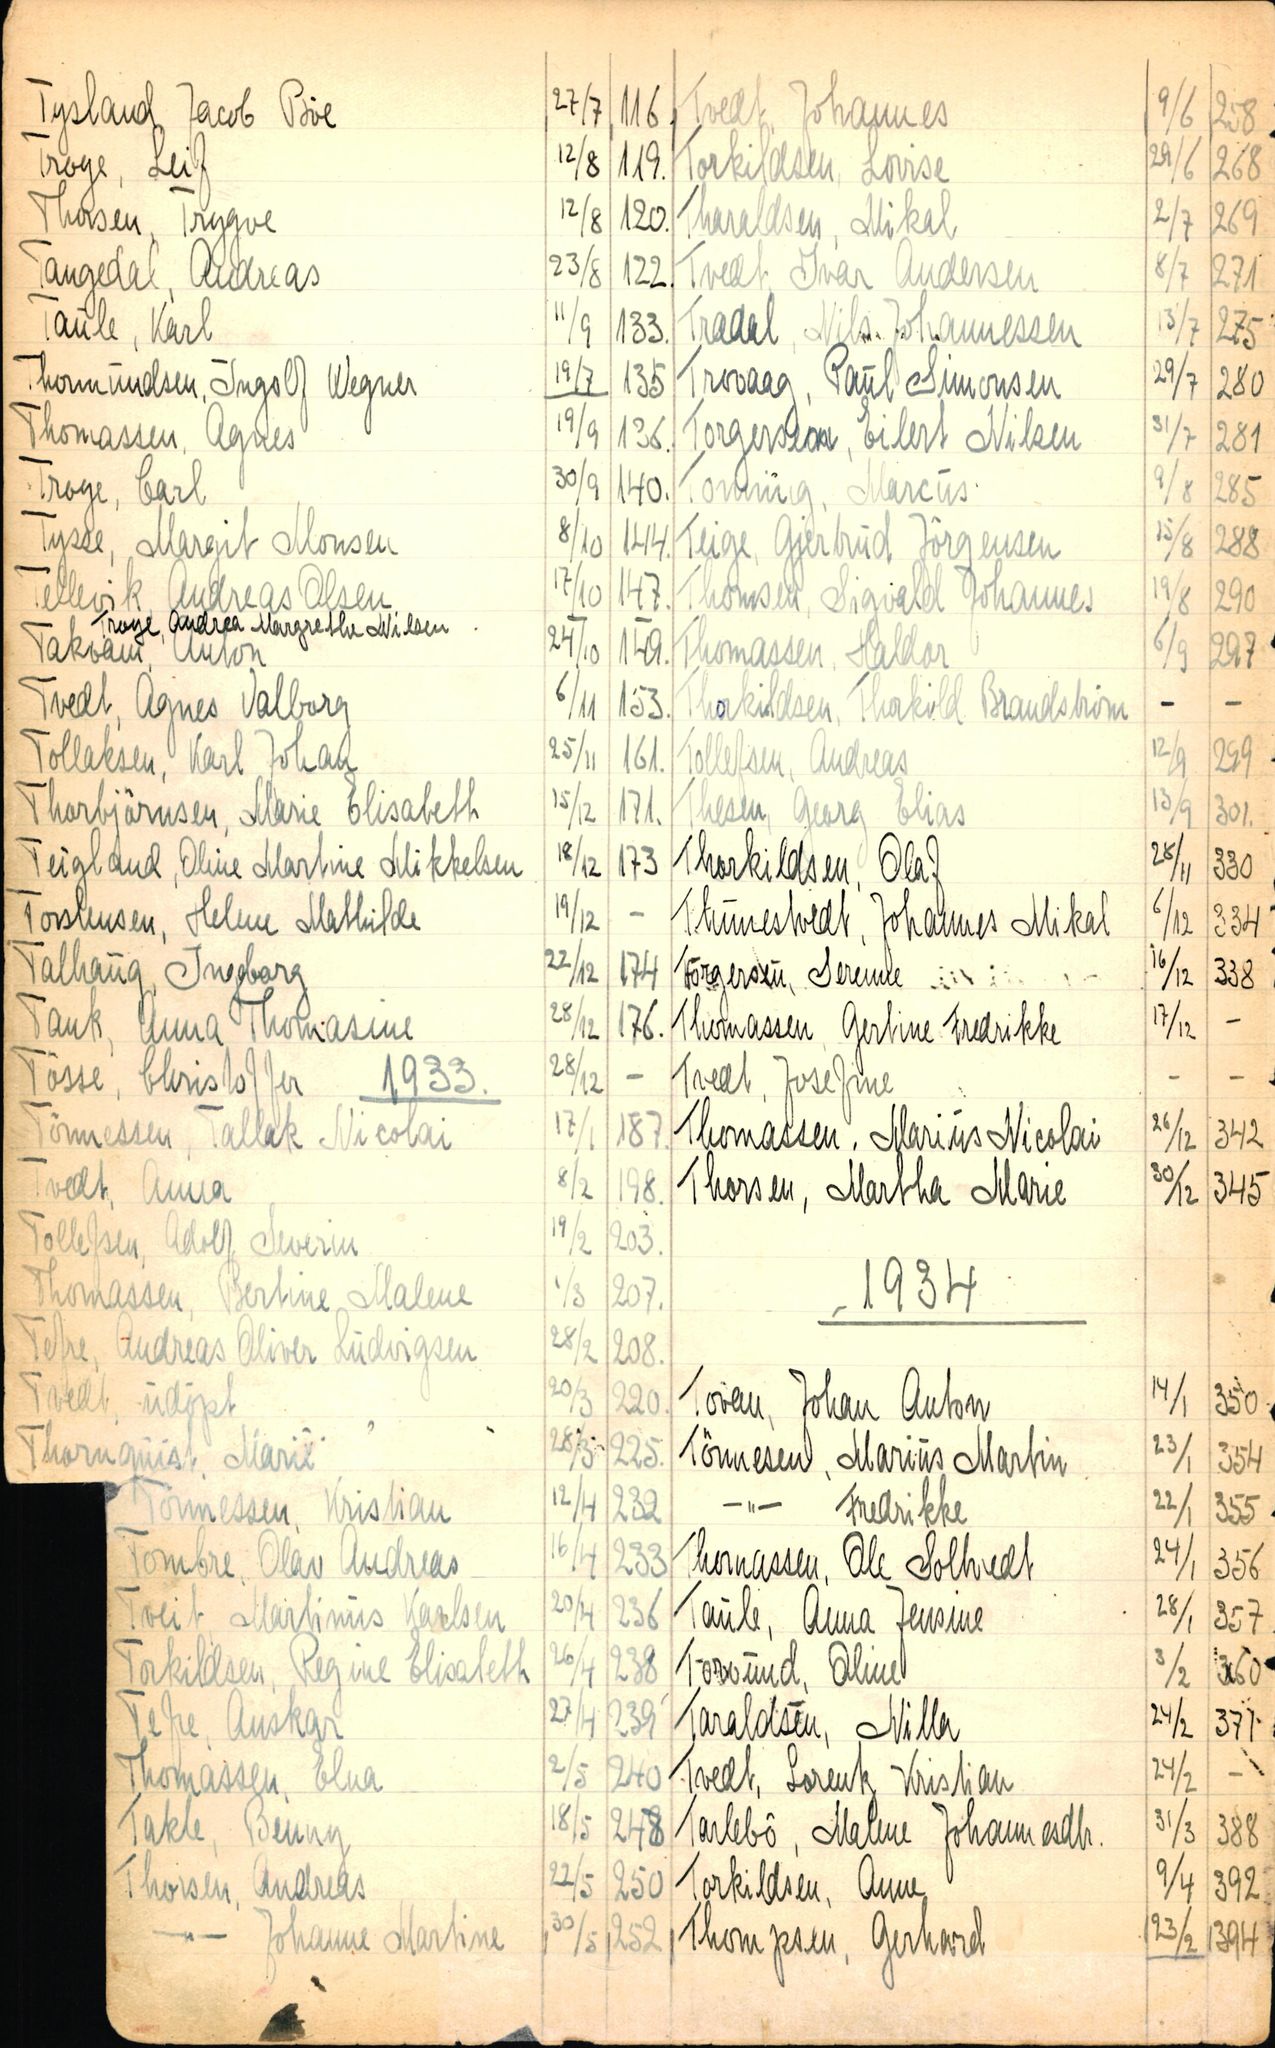 Tysland, Jacob Böe 27/7 116
Troye, Leif 12/8 119.
Thorsen, Trygve 12/8 120.
Tangedal, Andreas 23/8 122.
Taüle, Karl 11/9 133.
Thormündsen, Ingolf Wegner 19/7 135
Thomassen, Agnes 19/9 136.
Troye, Carl 30/9 140.
Tysse, Margit Monsen 8/10 144.
Tellevik, Andreas Olsen 17/10 147.
Troye, Andrea Margrethe Nilsen
Takvam, Anton 24/10 149.
Tvedt, Agnes Valborg 6/11 153.
Tollaksen, Karl Johan 25/11 161.
Thorbjörnsen, Marie Elisabeth 15/12 171.
Teigland, Oline Martine Mikkelsen 18/12 173
Torstensen, Helene Mathilde 19/12 -
Talhaüg, Ingeborg 22/12 174
Tank, Anna Thomasine 28/12 176.
Tösse, Christoffer 28/12 -
1933.
Tönnessen, Tallak Nicolai 17/1 187.
Tvedt, Anna 8/2 198.
Tollefsen, Adolf Severin 19/2 203.
Thomassen, Bertine Malene 1/3 207.
Tefre, Andreas Oliver Lüdvigsen 28/2 208.
Tvedt, üdöpt 20/3 220.
Thornqüist, Marie 28/3 225.
Tönnessen, Kristian 12/4 232
Tombre, Olav Andreas 16/4 233
Tveit Martinüs Karlsen 20/4 236
Torkildsen, Regine Elisabeth 26/4 238
Tefre, Anskar 27/4 239
Thomassen, Elna 2/5 240
Takle, Benny 18/5 248
Thorsen, Andreas 22/5 250
-"- Johanne Martine 30/5 252
Tvedt, Johannes 9/6 258
Torkildsen, Lovise 29/6 268
Tharaldsen, Mikal 2/7 269
Tvedt, Ivar Andersen 8/7 271
Tradal, Nils Johannessen 13/7 275
Trovaag, Paül Simonsen 29/7 280
Torgersen, Eilert Nilsen 31/7 281
Tonning, Marcüs 9/8 285
Teige, Gjertrüd Jörgensen 15/8 288
Thomsen, Sigvald Johannes 19/8 290
Thomassen, Haldor 6/9 297
Thorkildsen, Thorkild Brandström - -
Tollefsen, Andreas 12/9 299
Thesen, Georg Elias 13/9 301.
Thorkildsen, Olaf 28/11 330
Thünestvedt, Johannes Mikal 6/12 334
Torgersen, Serene 16/12 338
Thomassen Gertine Fredrikke 17/12 -
Tvedt, Josefine - -
Thomassen, Mariüs Nicolai 26/12 342
Thorsen, Martha Marie 30/12 345
1934
Tovan, Johan Anton 14/1 350
Tönnesen, Mariüs Martin 23/1 354
-"- Fredrikke 22/1 355
Thomassen, Ole Soltvedt 24/1 356
Taüle, Anna Jensine 28/1 357
Torvünd, Oline 3/2 360
Taraldsen, Nilla 24/2 371
Tvedt, Lorentz Kristian 24/2 -
Tarlebö, Malene Johannesdtr. 31/3 388
Torkildsen, Anne 9/4 392
Thompsen, Gerhard 23/2 394